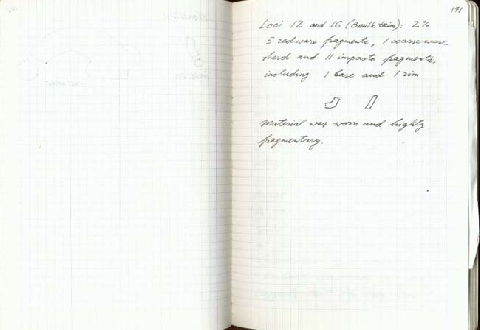 191
Loci 12 and 15 (                ): 2 %
5 redware fragments, 1 coarseware
sherd and 11 impasto fragments,
including 1 base and 1 rim
Material was worn and highly
fragmentary.